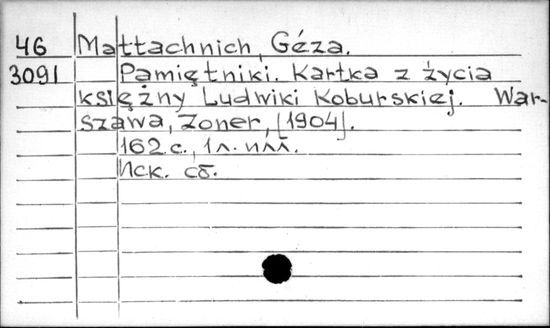 46 Mattachnich, Géza.
3091 Pamiętniki. Kartka z życia
księżny Ludwiki Koburskiej. War-
szawa, Zoner, [1904].
162 с., 1 л. илл.
Иск. сб.